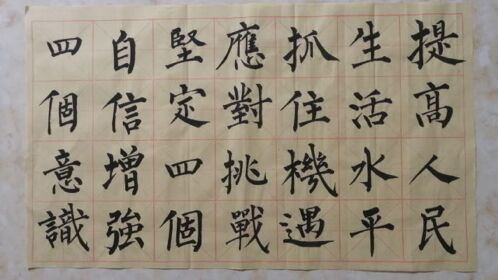 提高人民
生活水平
抓住機遇
應對挑戰
堅定四個
自信增強
四個意識